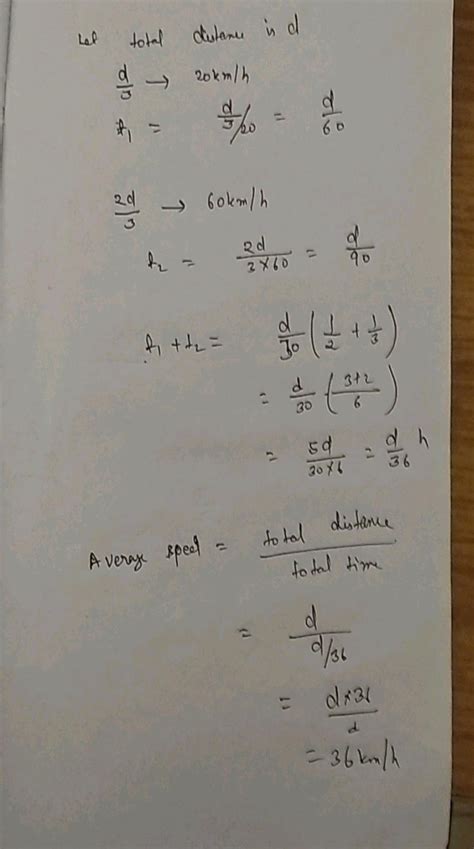 Let total distance is d
d/3 → 20km/h
t₁ = d/3/20 = d/60
2d/3 → 60km/h
t₂ = 2d/3×60 = d/90
t₁ + t₂ = d/30 (1/2 + 1/3)
= d/30 (3+2/6)
= 5d/30×6 = d/36 h
Average speed = total distance/total time
= d/d/36
= d×36/d
= 36km/h